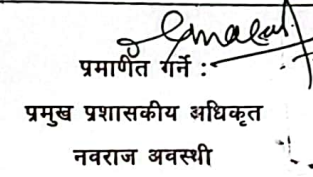 प्रमाणित गर्ने :
प्रमुख प्रशासकीय अधिकृत
नवराज अवस्थी